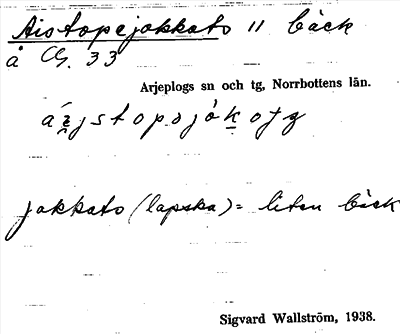 Aistopejakkats 11 bäck
å Cg. 33
Arjeplogs sn och tg, Norrbottens län.
jakkats (lapska) = liten bäck
Sigvard Wallström, 1938.